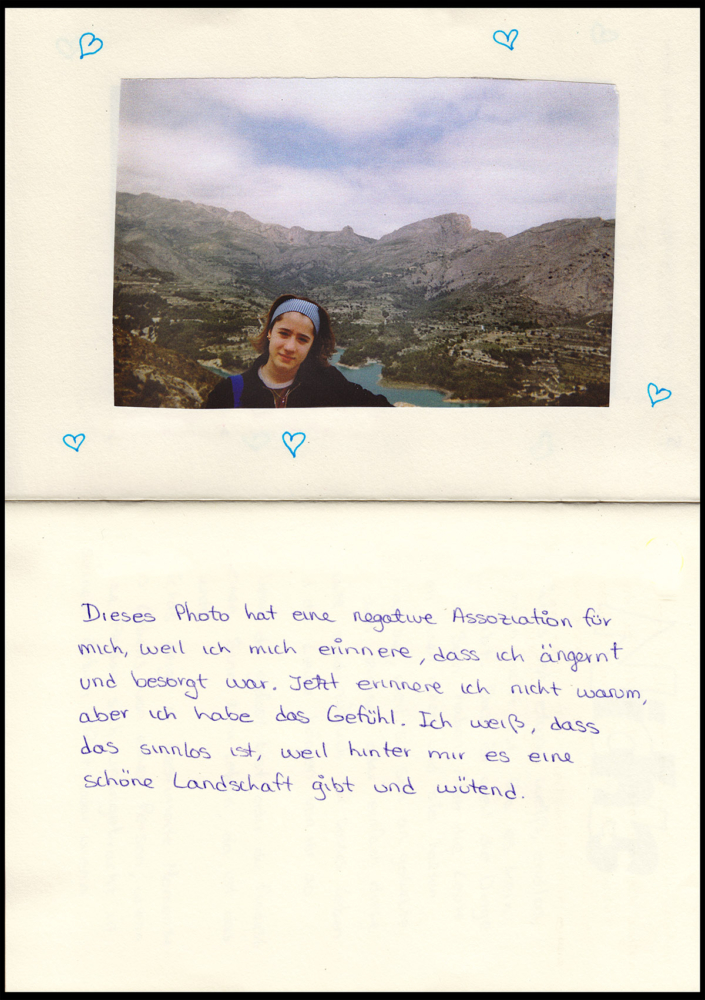 Dieses Photo hat eine negative Assoziation für
mich, weil ich mich erinnere, dass ich ängernt
und besorgt war. Jetzt erinnere ich nicht warum,
aber ich habe das Gefühl. Ich weiß, dass
das sinnlos ist, weil hinter mir es eine
schöne Landschaft gibt und wütend.